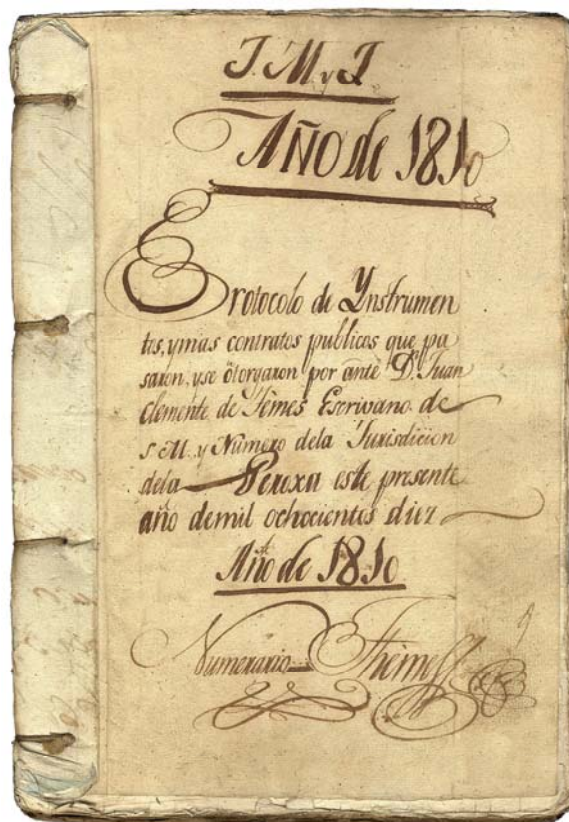 J. M. y J.
AÑO de 1810
Protocolo de Ynstrumen
tos, y mas contratos publicos que pa
saron, y se òtorgaron por ante D.n Juan
Clemente de Tèmes Escrivano de
s. M. y Numero dela Jurisdicion
dela Peroxa este presente
año de mil ochocientos diez
Año de 1810
Numerario Thèmes